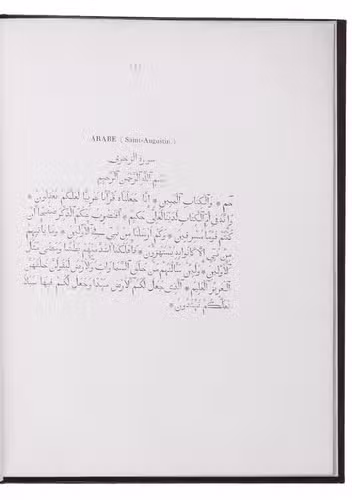 ARABE ( Saint-Augustin. )
سورة الزخرف
بسم الله الرحمن الرحيم
حم * والكتاب المبين * انا جعلناه قرآنا عربيا لعلكم تعقلون *
وانه في ام الكتاب لدينا لعلي حكيم * افنضرب عنكم الذكر صفحا ان
كنتم قوما مسرفين * وكم ارسلنا من نبي في الاولين * وما ياتيهم
من نبي الا كانوا به يستهزون * فاهلكنا اشد منهم بطشا ومضى مثل
الاولين * ولين سالتهم من خلق السماوات والارض ليقولن خلقهن
العزيز العليم * الذي جعل لكم الارض مهدا وجعل لكم فيها سبلا
لعلكم تهتدون *